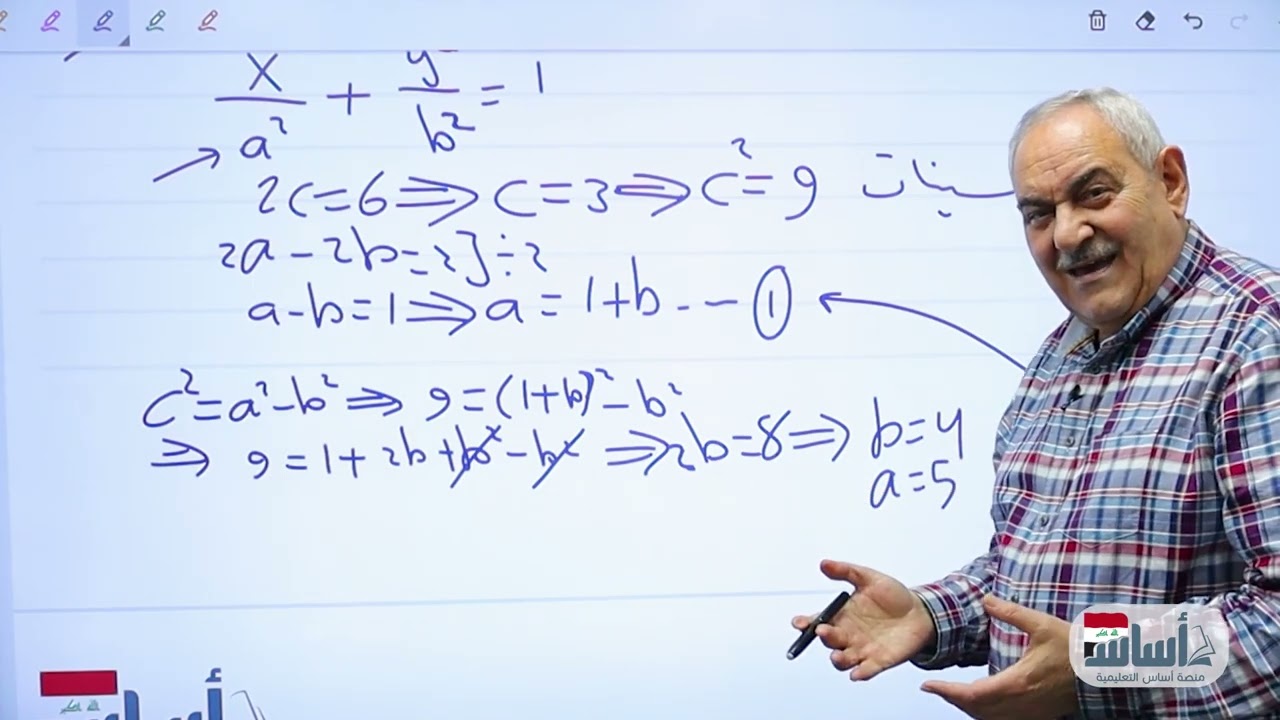 x/a² + y/b² = 1
2c = 6 ⟹ c = 3 ⟹ c² = 9 سينات
2a - 2b = 2] ÷ 2
a - b = 1 ⟹ a = 1 + b -- ①
c² = a² - b² ⟹ 9 = (1+b)² - b²
⟹ 9 = 1 + 2b + b² - b² ⟹ 2b = 8 ⟹ b = 4
a = 5
أساس
منصة أساس التعليمية
أساس